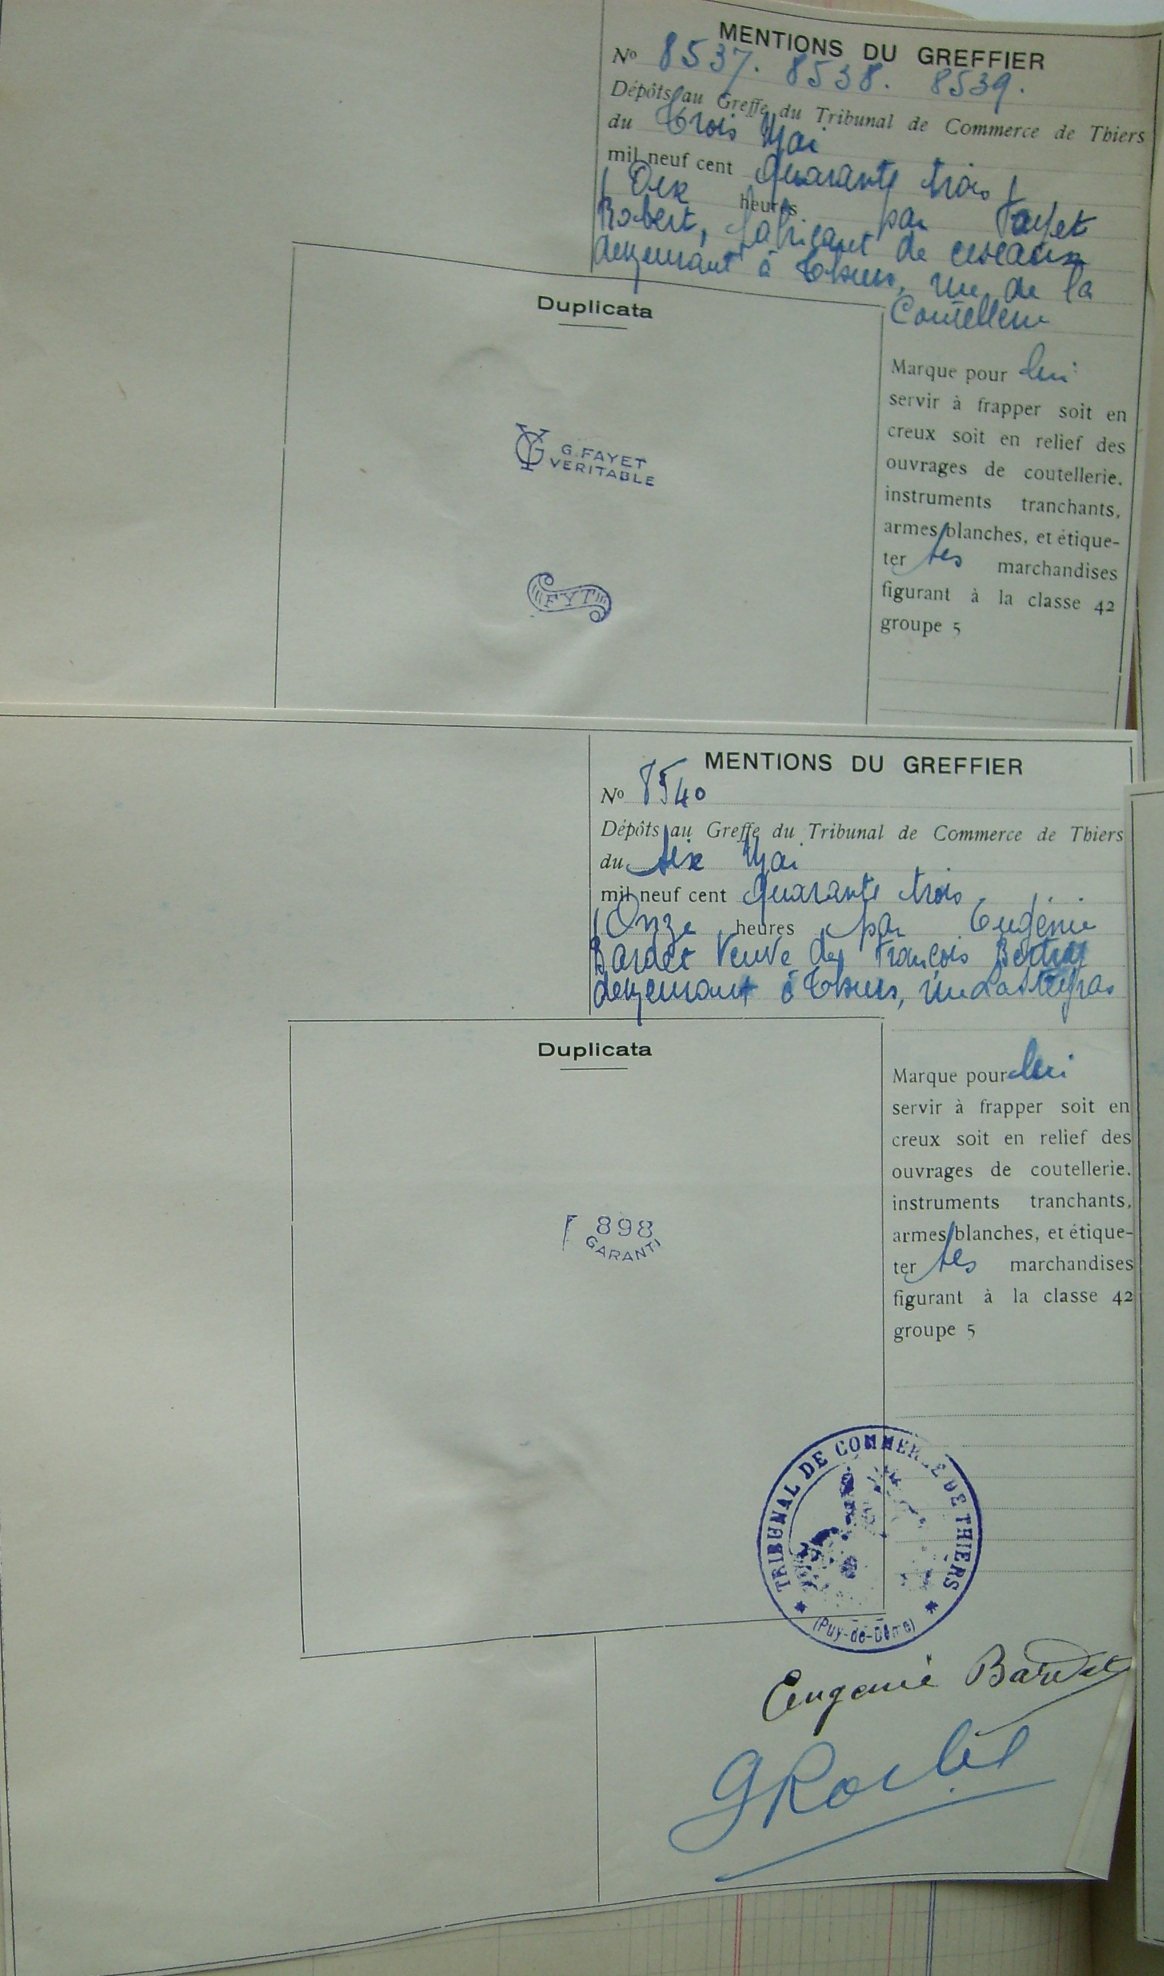 MENTIONS DU GREFFIER
No 8537. 8538. 8539.
Dépôts au Greffe du Tribunal de Commerce de Thiers
du trois Mai
mil neuf cent quarante trois
Dix heures par Fayet
Robert, fabricant de ciseaux
demeurant à Thiers, rue de la
Coutellerie
Duplicata
Marque pour lui
servir à frapper soit en
creux soit en relief des
ouvrages de coutellerie,
instruments tranchants,
armes blanches, et étique-
ter ses marchandises
figurant à la classe 42
groupe 5
G. FAYET
VERITABLE
FYT
MENTIONS DU GREFFIER
No 8540
Dépôts au Greffe du Tribunal de Commerce de Thiers
du six Mai
mil neuf cent quarante trois
Onze heures par Eugénie
Bardet Veuve de François
demeurant à Thiers, rue
Duplicata
Marque pour lui
servir à frapper soit en
creux soit en relief des
ouvrages de coutellerie,
instruments tranchants,
armes blanches, et étique-
ter ses marchandises
figurant à la classe 42
groupe 5
898
GARANTI
TRIBUNAL DE COMMERCE DE THIERS
(Puy-de-Dôme)
Eugenie Bardet